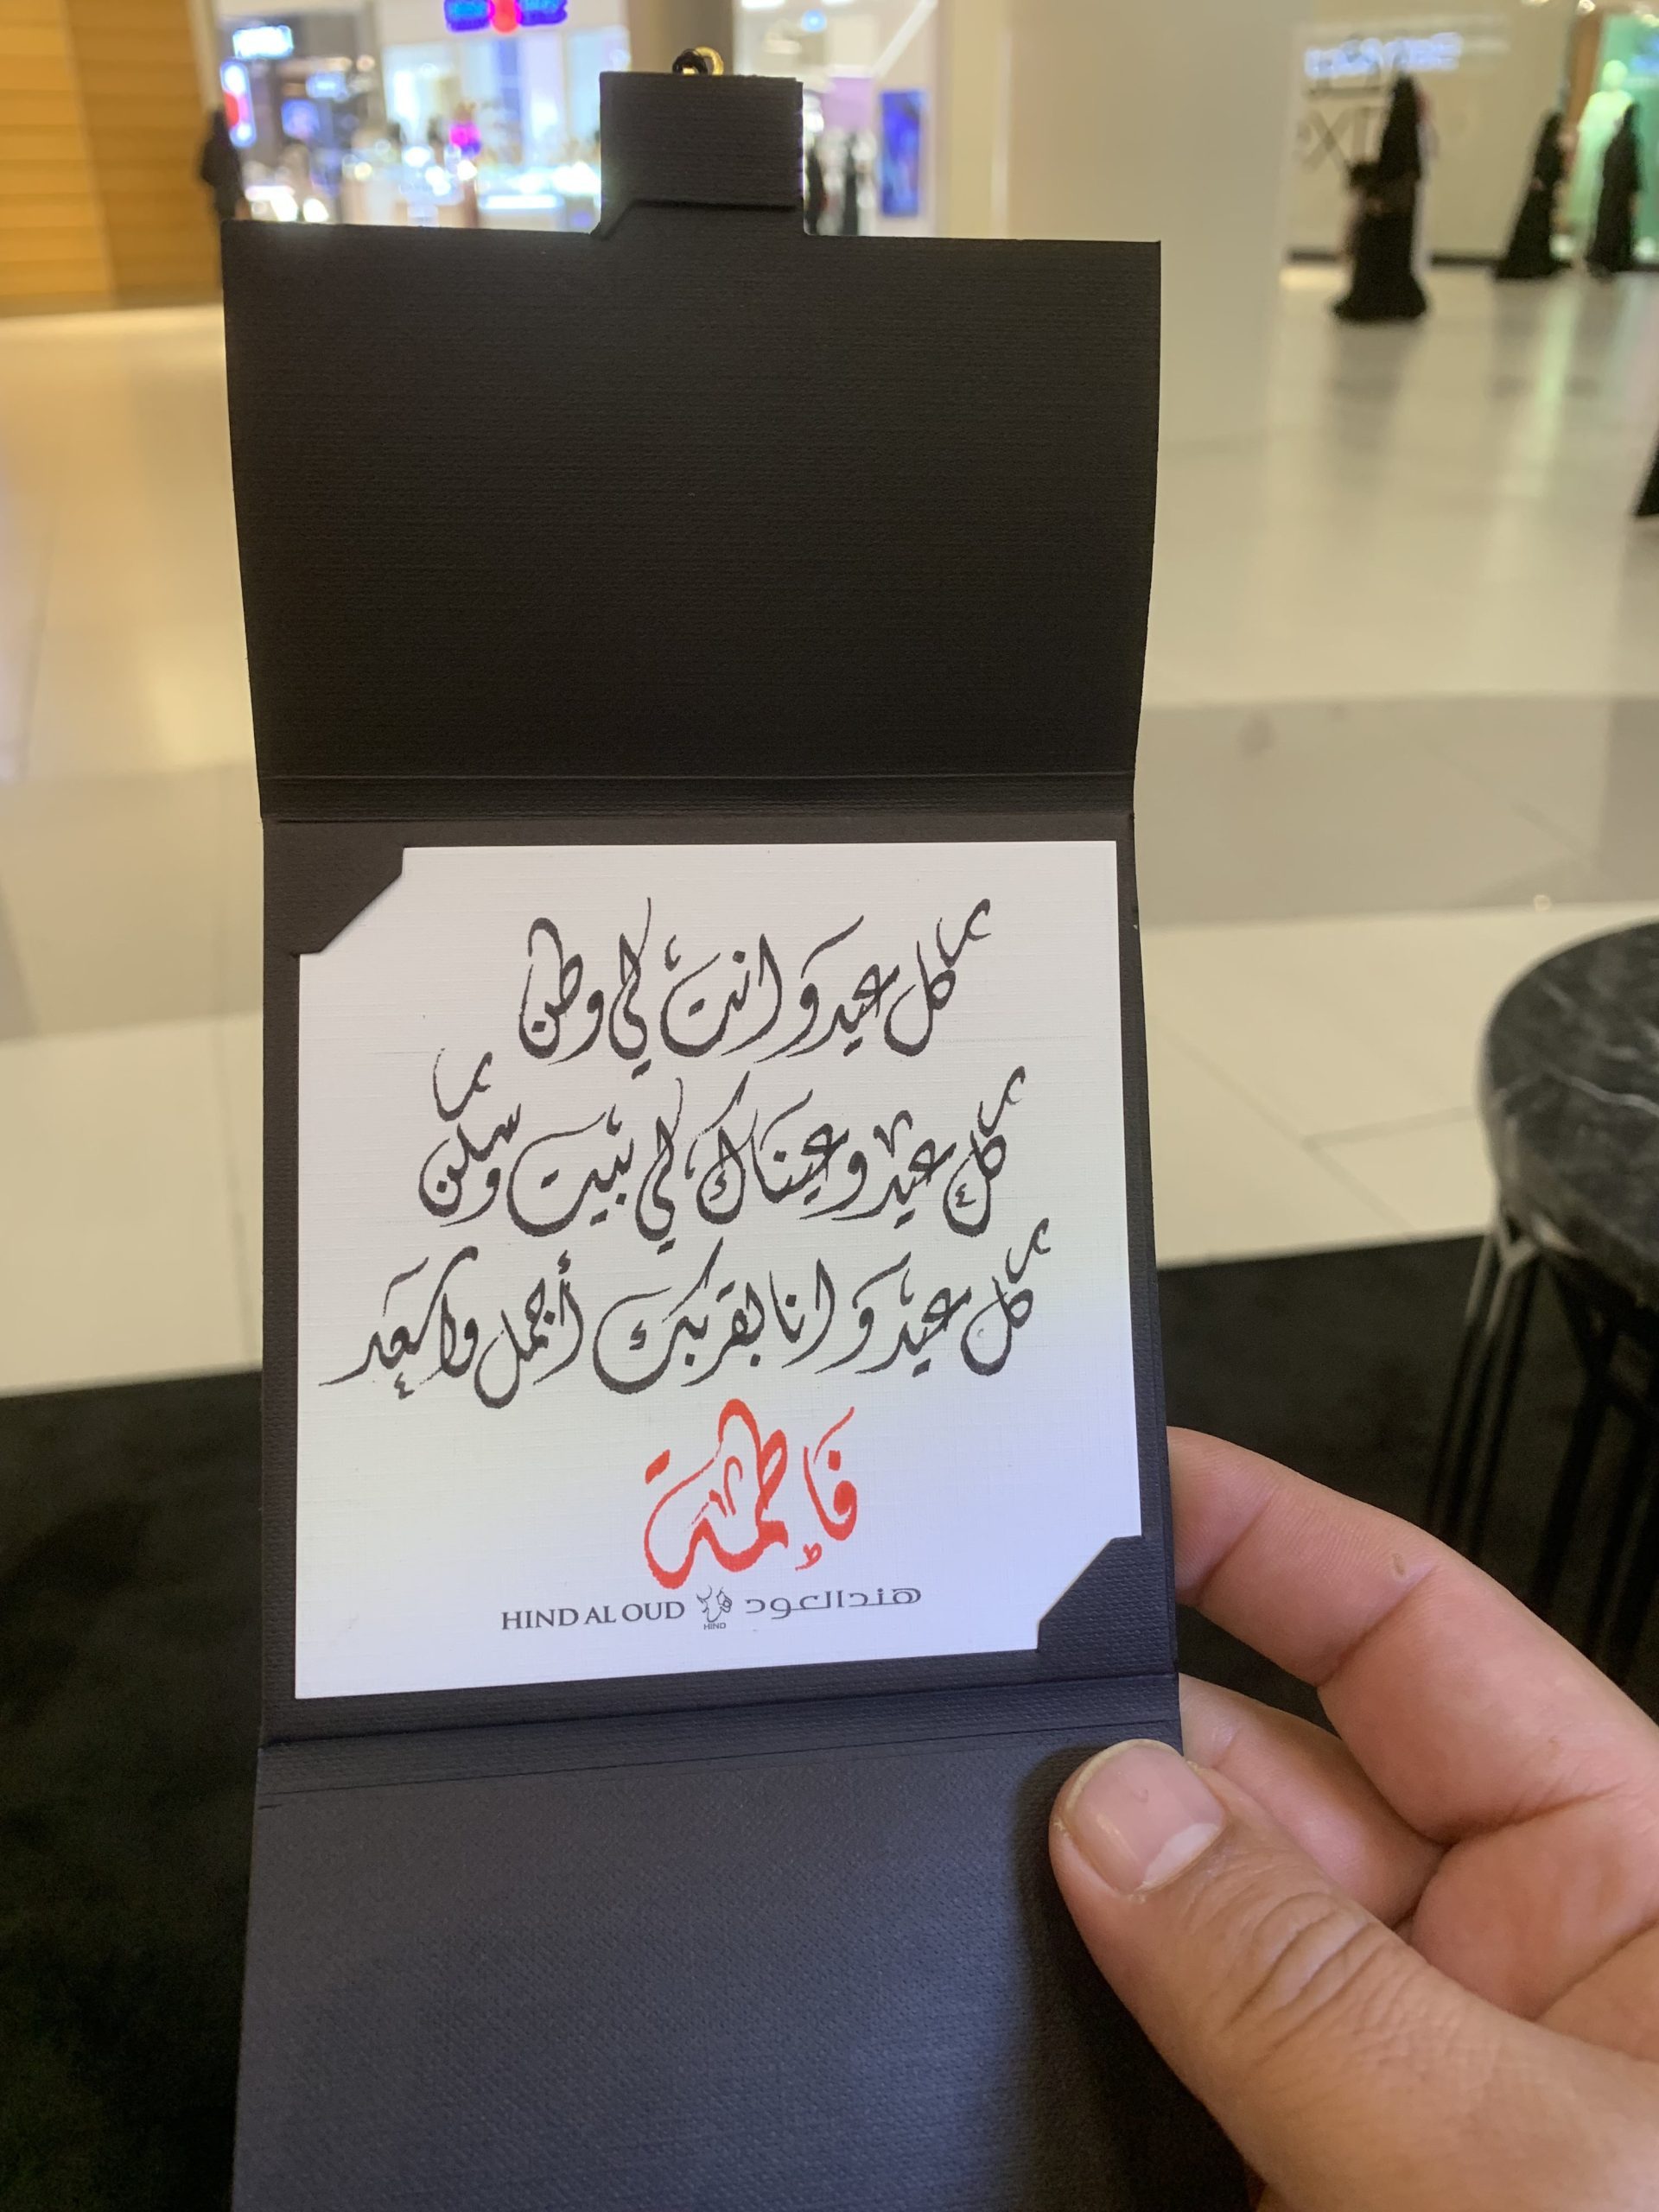 كل عيد وانت لي وطن
كل عيد وعيناك لي بيت وسكن
كل عيد وانا بقربك أجمل واسعد
فاطمة
HIND AL OUD هند العود
HIND